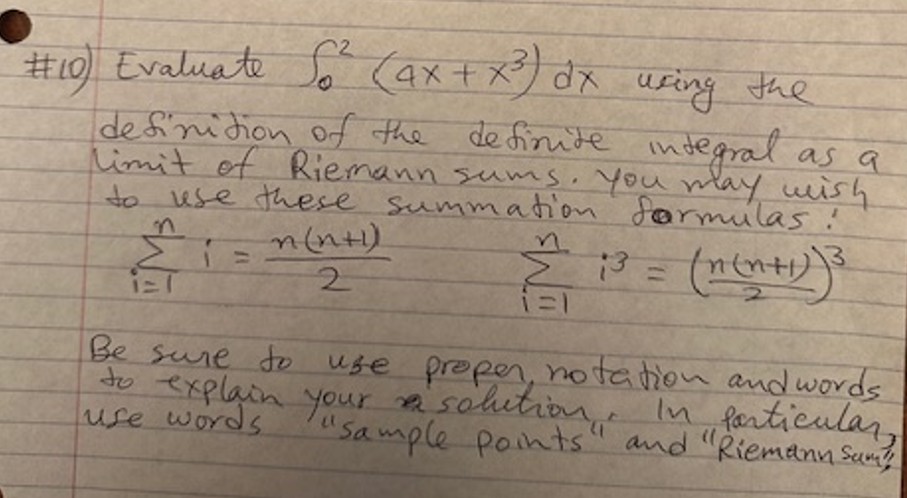 #10) Evaluate ∫₀² (4x + x³) dx using the
definition of the definite integral as a
limit of Riemann sums. You may wish
to use these summation formulas:
n∑i=1 i = n(n+1)/2    n∑i=1 i³ = (n(n+1)/2)³
Be sure to use proper notation and words
to explain your solution. In particular,
use words "sample points" and "Riemann sum".